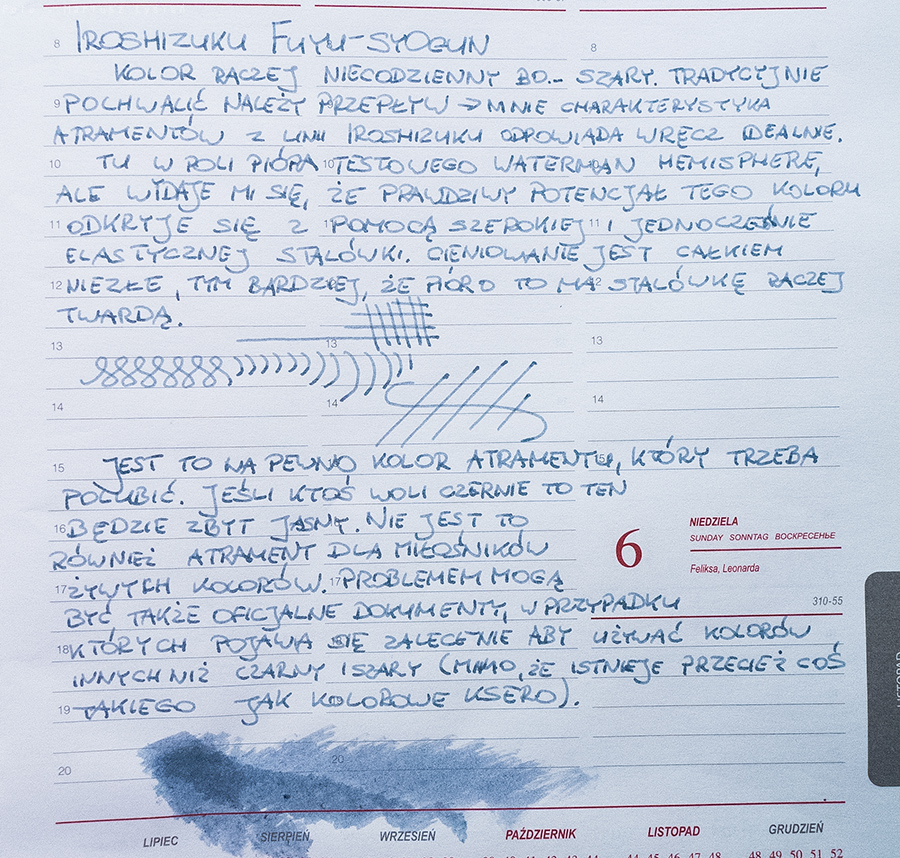 8 IROSHIZUKU FUYU-SYOGUN 8
KOLOR RACZEJ NIECODZIENNY BO... SZARY. TRADYCYJNIE
9 POCHWALIĆ NALEŻY PRZEPŁYW → MNIE CHARAKTERYSTYKA
ATRAMENTÓW Z LINII IROSHIZUKU ODPOWIADA WRĘCZ IDEALNIE.
10 TU W ROLI PIÓRA 10 TESTOWEGO WATERMAN HEMISPHERE,
ALE WYDAJE MI SIĘ, ŻE PRAWDZIWY POTENCJAŁ TEGO KOLORU
11 ODKRYJE SIĘ Z POMOCĄ SZEROKIEJ 11 I JEDNOCZEŚNIE
ELASTYCZNEJ STALÓWKI. CIENIOWANIE JEST CAŁKIEM
12 NIEZŁE, TYM BARDZIEJ, ŻE PIÓRO TO MA 12 STALÓWKĘ RACZEJ
TWARDĄ.
13 13 13
14 14 14
15 JEST TO NA PEWNO KOLOR ATRAMENTU, KTÓRY TRZEBA
POLUBIĆ. JEŚLI KTOŚ WOLI CZERNIE TO TEN
16 BĘDZIE ZBYT JASNY. NIE JEST TO
RÓWNIEŻ ATRAMENT DLA MIŁOŚNIKÓW
17 ŻYWYCH KOLORÓW. 17 PROBLEMEM MOGĄ
BYĆ TAKŻE OFICJALNE DOKUMENTY, W PRZYPADKU
18 KTÓRYCH POJAWIA SIĘ ZALECENIE ABY UŻYWAĆ KOLORÓW
INNYCH NIŻ CZARNY I SZARY (MIMO, ŻE ISTNIEJE PRZECIEŻ COŚ
19 TAKIEGO JAK KOLOROWE KSERO).
20 20
6 NIEDZIELA
SUNDAY SONNTAG ВОСКРЕСЕНЬЕ
Feliksa, Leonarda
310-55
LISTOPAD
LIPIEC SIERPIEŃ WRZESIEŃ PAŹDZIERNIK LISTOPAD GRUDZIEŃ
44 45 46 47 48 48 49 50 51 52